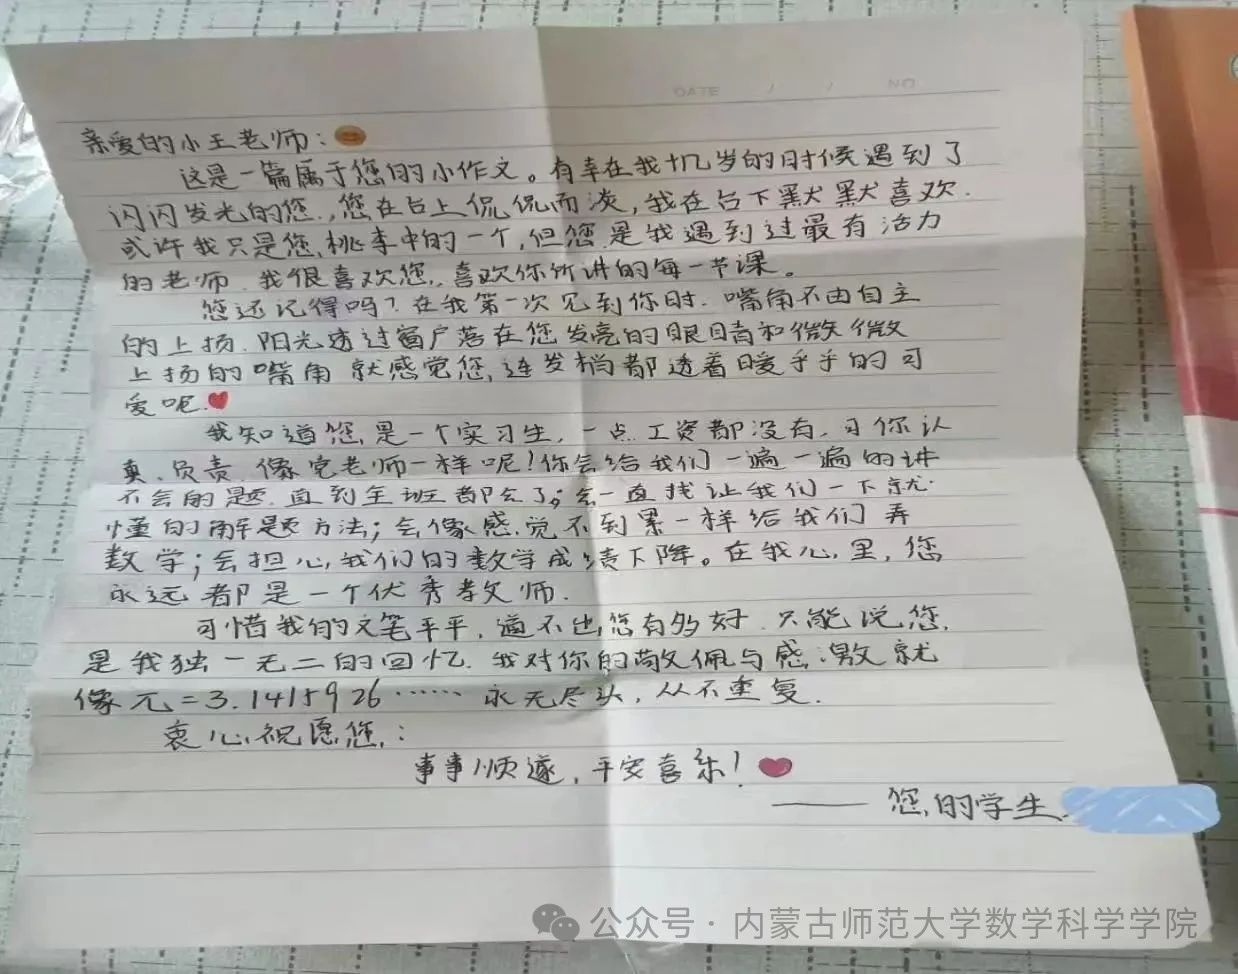 DATE / / NO
亲爱的小王老师：
这是一篇属于您的小作文。有幸在我十几岁的时候遇到了
闪闪发光的您.，您在台上侃侃而淡，我在台下默默喜欢.
或许我只是您桃李中的一个，但您是我遇到过最有活力
的老师.我很喜欢您，喜欢你所讲的每一节课。
您还记得吗？在我第一次见到你时.嘴角不由自主
的上扬.阳光透过窗户落在您发亮的眼睛和微微
上扬的嘴角就感觉您连发梢都透着暖乎乎的可
爱呢.
我知道您是一个实习生，一点工资都没有.可你认
真.负责像党老师一样呢！你会给我们一遍一遍的讲
不会的题.直到全班都会了；会一直找让我们一下就
懂的解题方法；会像感觉不到累一样给我们弄
数学；会担心我们的数学成绩下降。在我心里，您
永远都是一个优秀教师.
可惜我的文笔平平，道不出您有多好.只能说您
是我独一无二的回忆.我对你的敬佩与感激就
像π=3.1415926……永无尽头，从不重复.
衷心祝愿您：
事事顺遂，平安喜乐！
——您的学生
公众号·内蒙古师范大学数学科学学院